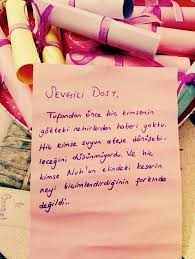 SEVGİLİ DOST,
Tufandan önce hiç kimsenin
gökteki nehirlerden haberi yoktu.
Hiç kimse suyun ateşe dönüşebi-
leceğini düşünmüyordu. Ve hiç
kimse Nuh'un elindeki keserin
neyi biçimlendirdiğinin farkında
değildi..